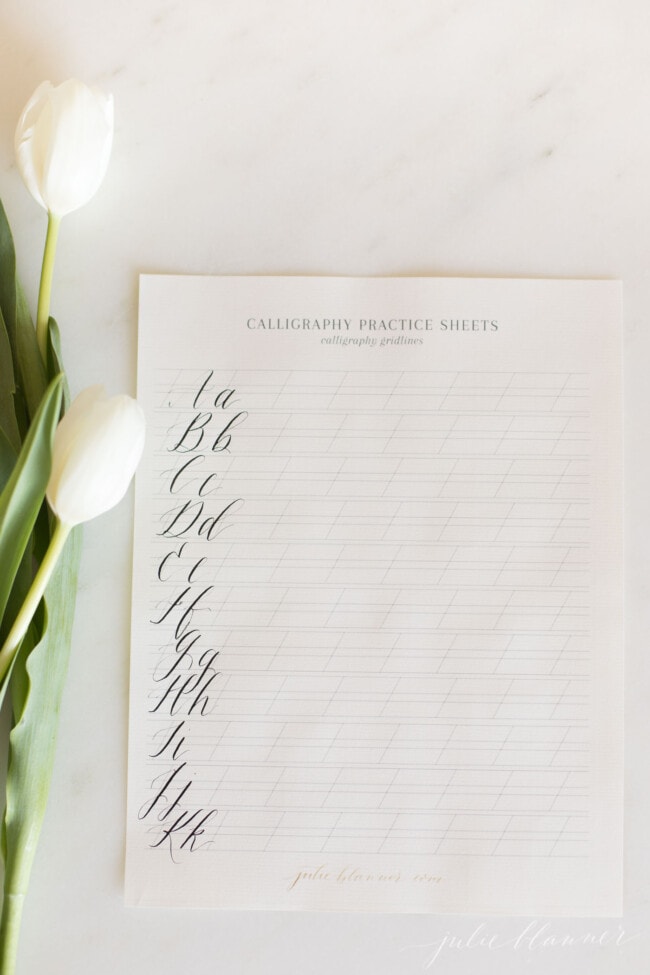 CALLIGRAPHY PRACTICE SHEETS
calligraphy gridlines
A a
B b
C c
D d
E e
F f
G g
H h
I i
J j
K k
julieblanner.com
julie blanner